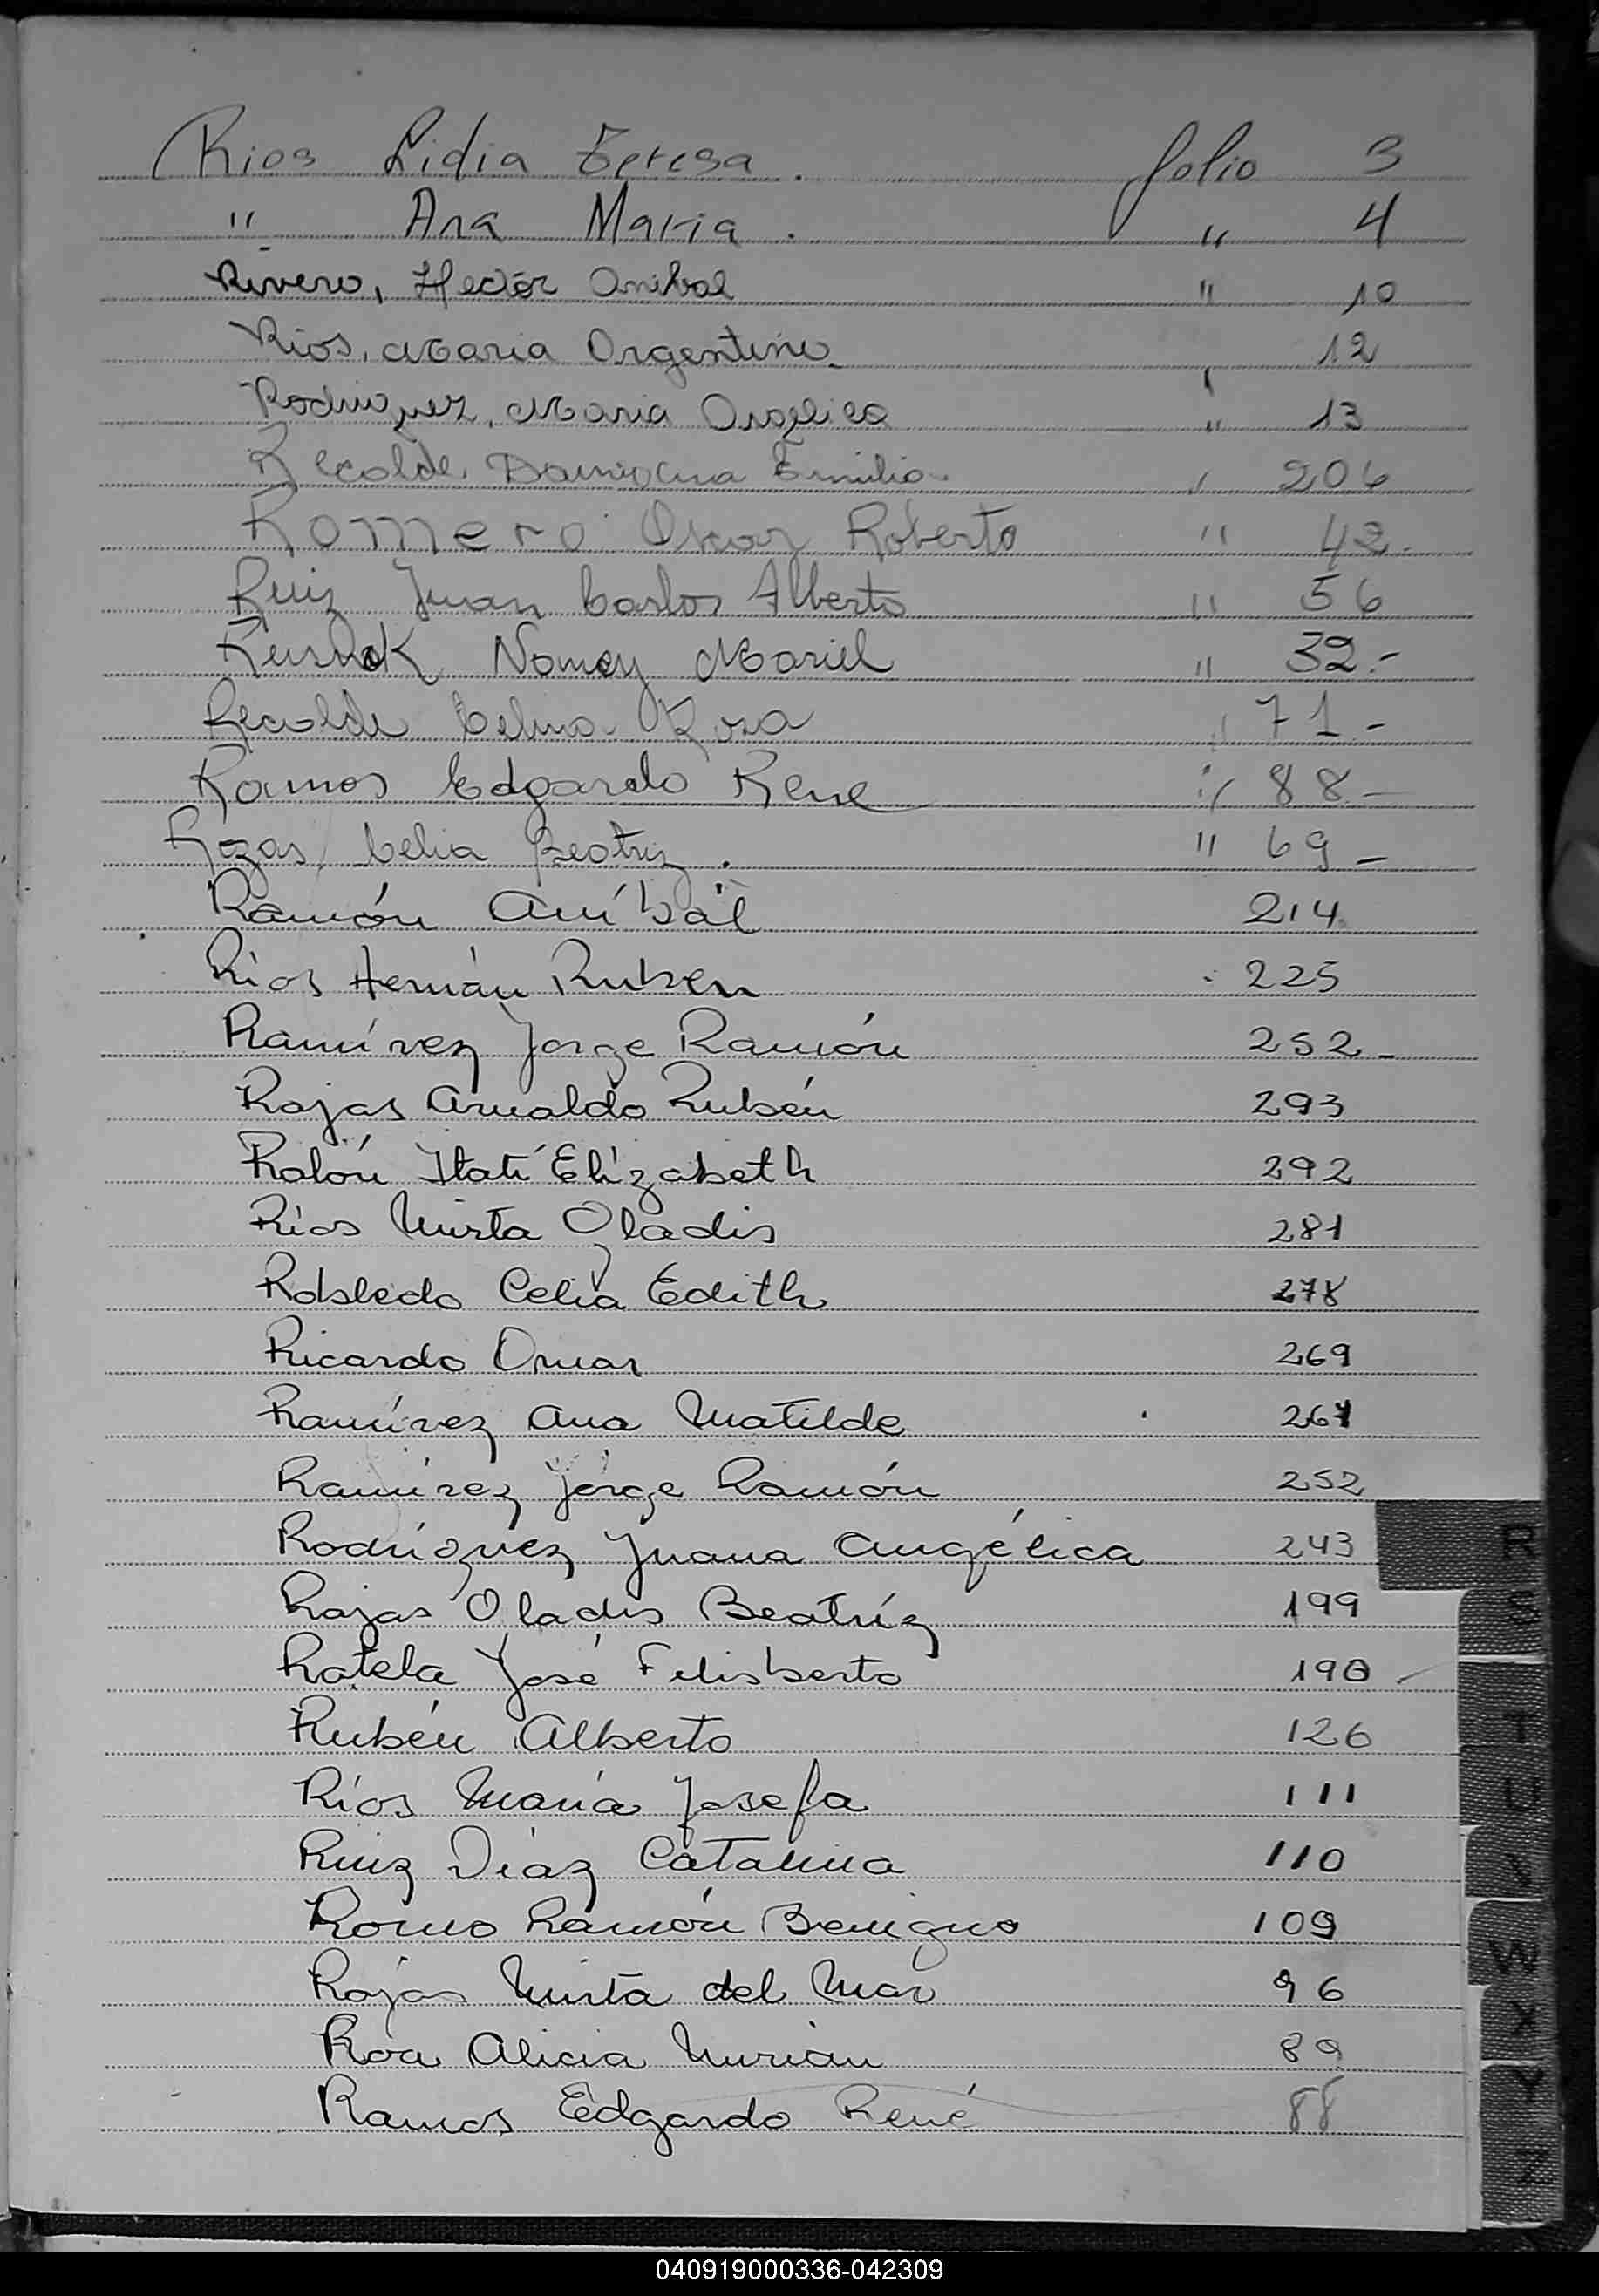 Rios Lidia Teresa. folio 3
" Ana Maria. " 4
Rivero, Hector Anibal " 10
Rios, Maria Argentina 12
Rodriguez, Maria Angelica " 13
Recolde Damiana Emilia 206
Romero Oscar Roberto " 42.
Ruiz Juan Carlos Alberto " 56
Nancy Mariel " 32.-
Recolde Celina Rosa " 71-
Ramos Edgardo Rene " 88-
Rozas, Celia Beatriz. " 69-
Ramón Aníbal 214
Ríos Hernán Ruben 225
Ramírez Jorge Ramón 252-
Rojas Arnaldo Rubén 293
Rolón Itatí Elizabeth 292
Ríos Mirta Gladis 281
Robledo Celia Edith 278
Ricardo Omar 269
Ramírez Ana Matilde
Ramírez Jorge Ramón 252
Rodríguez Juana Angélica 243
R
Rojas Gladis Beatríz 199
S
Ratela José Felisberto 190
Rubén Alberto 126
T
Ríos María Josefa 111
U
Ruiz Díaz Catalina 110
V
Romo Ramón Benigno 109
W
Rojas Mirta del Mar 96
X
Roa Alicia Mirian 89
Y
Ramos Edgardo René 88
Z
040919000336-042309